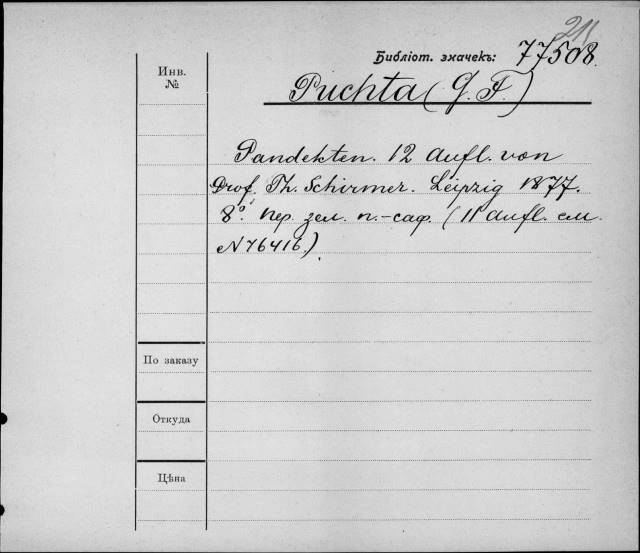 Библіот. значекъ: 77508.
Инв.
№
Puchta (G. F.)
Pandekten. 12 Aufl. von
Prof. Th. Schirmer. Leipzig 1877.
8°. пер. зел. п.-саф. (11 Aufl. см.
N 76416.)
По заказу
Откуда
Цѣна